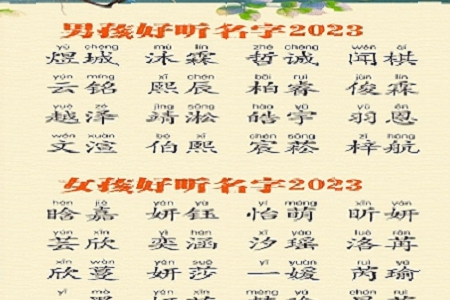 男孩好听名字2023
yù chéng mù lín zhé chéng wén qí
煜城 沐霖 哲诚 闻棋
yún míng xī chén bǎi ruì jùn lín
云铭 熙辰 柏睿 俊霖
yuè zé jìng sōng hào yǔ yǔ ēn
越泽 靖淞 皓宇 羽恩
wén xuān bó xī chén sōng zǐ háng
文渲 伯熙 宸菘 梓航
女孩好听名字2023
hán jiā yán yù yí méng xīn yán
晗嘉 妍钰 怡萌 昕妍
yún xīn yì hán xī yáo luò rǎn
芸欣 奕涵 汐瑶 洛苒
欣蔓 妍莎 一媛 芮瑜